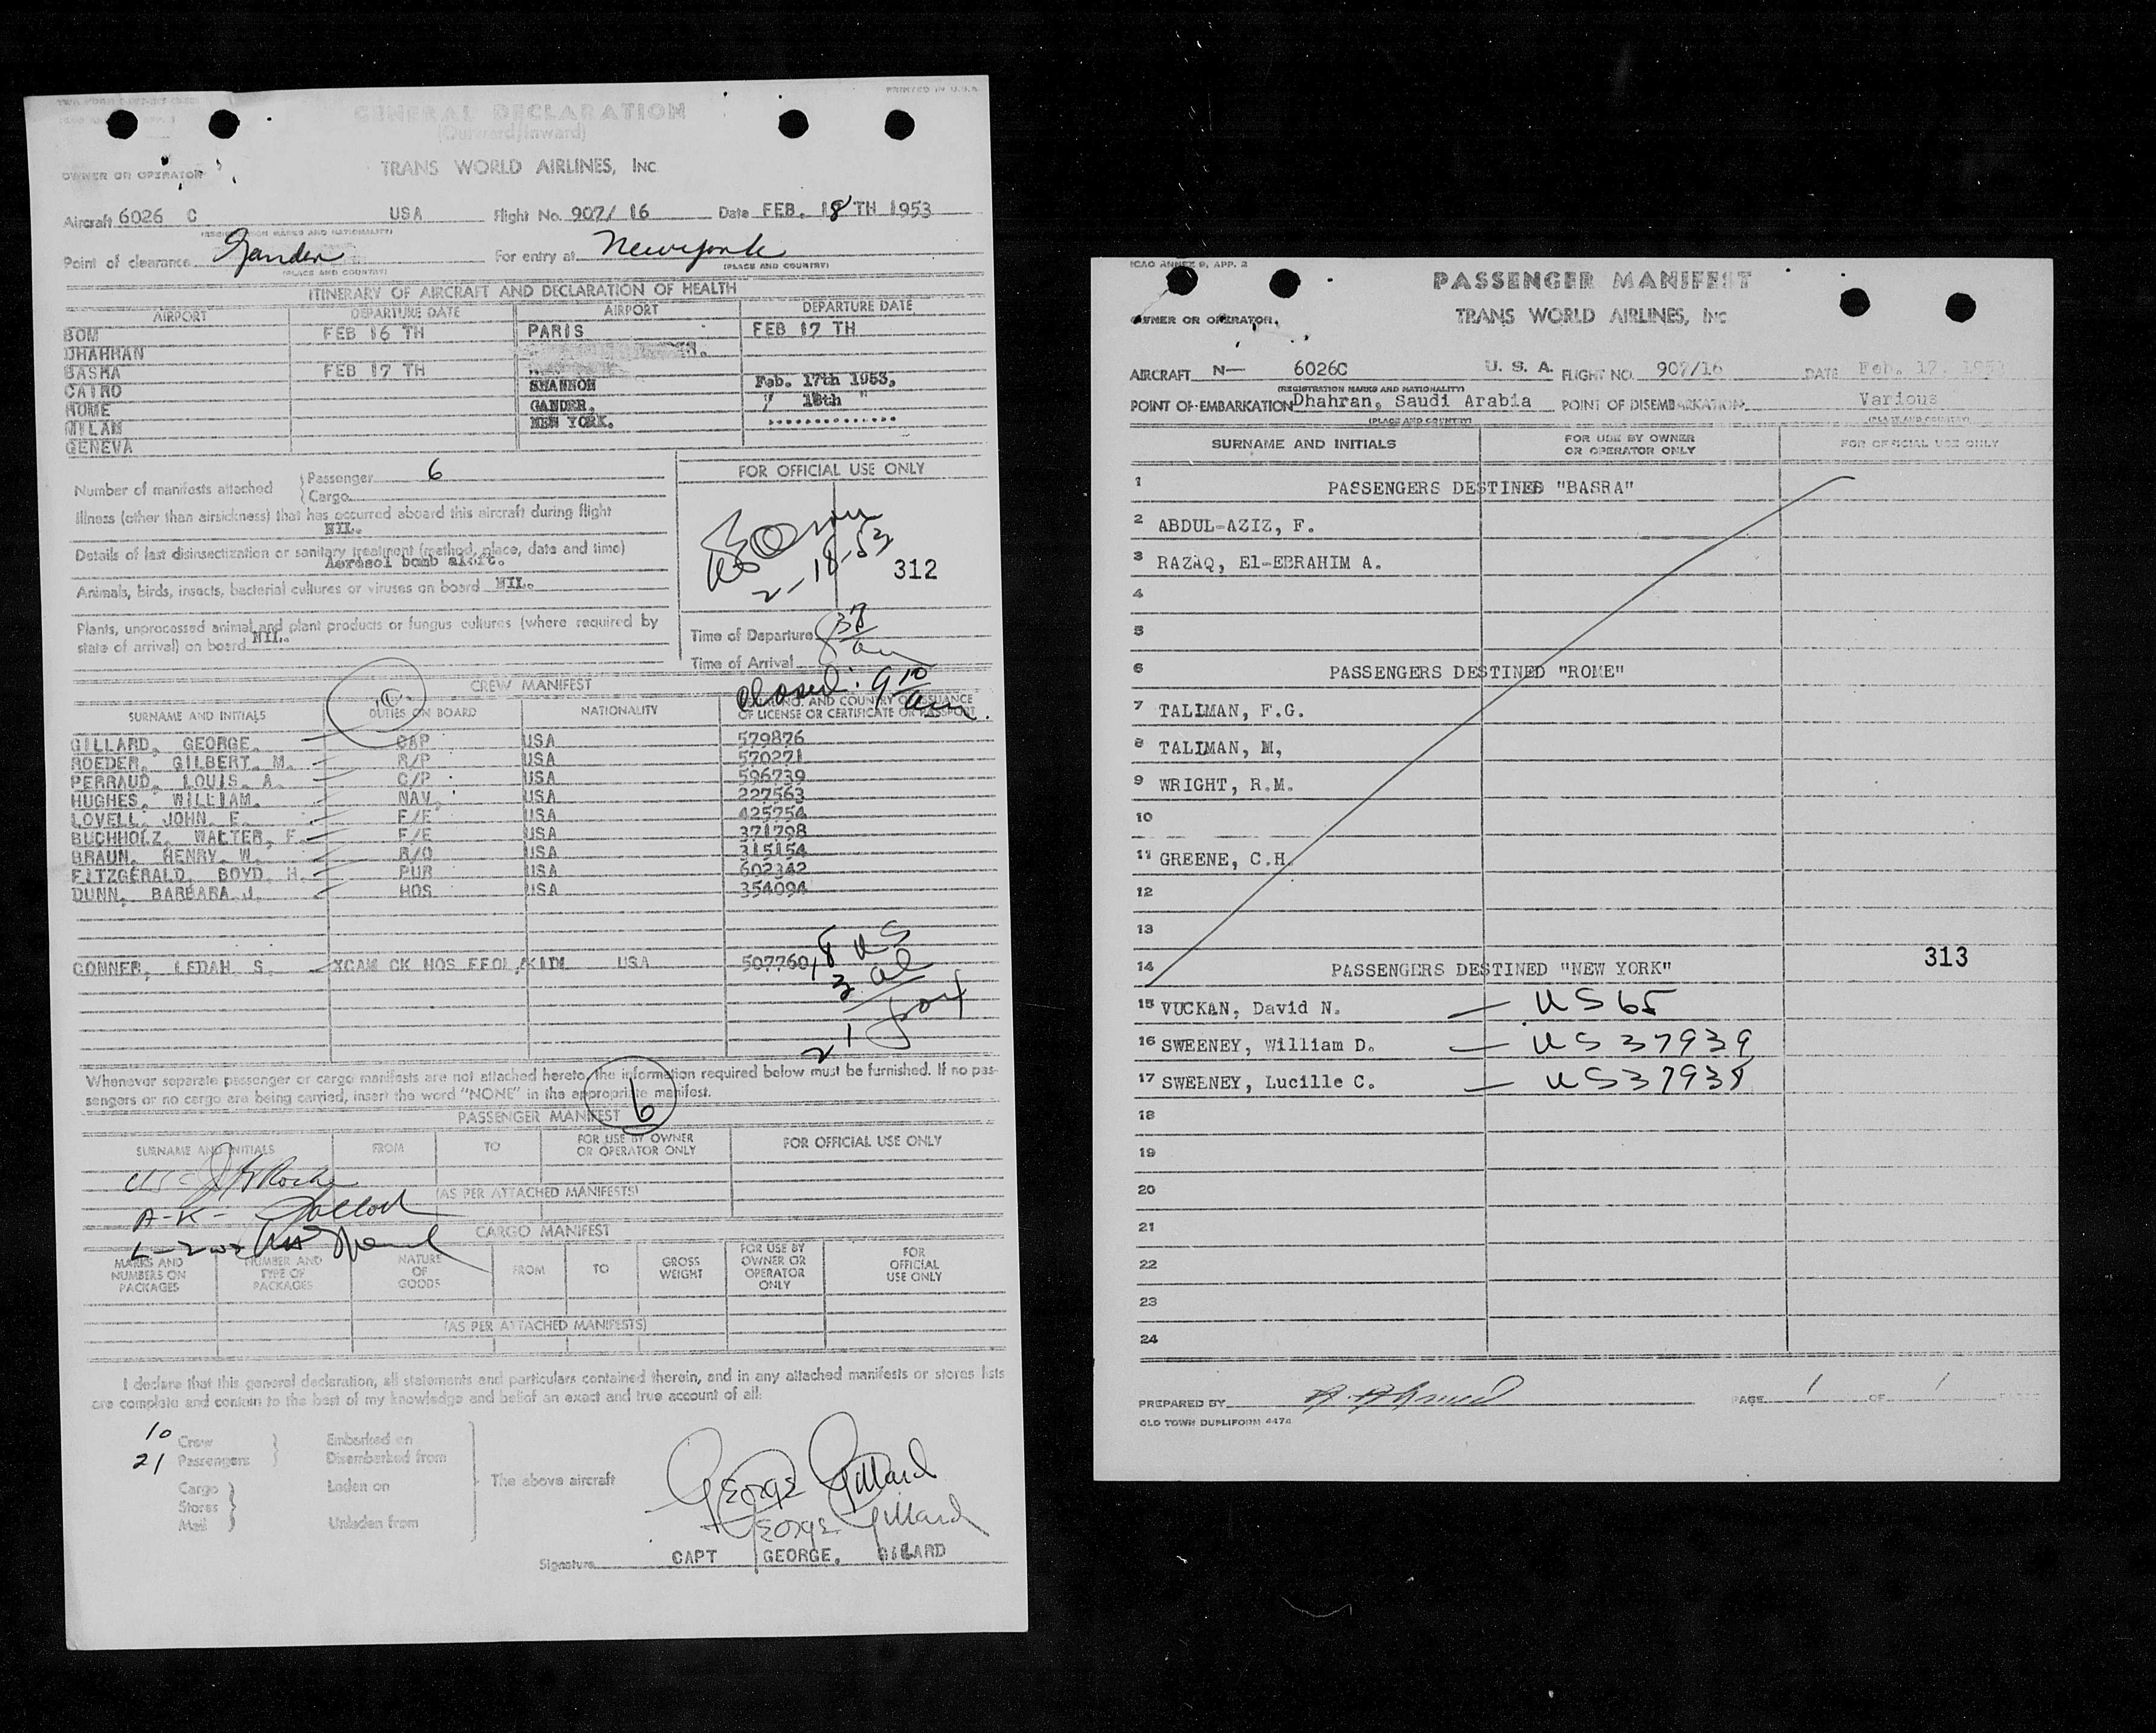 PRINTED IN U.S.A.
GENERAL DECLARATION
(Outward/Inward)
OWNER OR OPERATOR
TRANS WORLD AIRLINES, INC
Aircraft 6026 C USA Flight No. 907/ 16 Date FEB. 18 TH 1953
(REGISTRATION MARKS AND NATIONALITY)
Point of clearance Gander For entry at New York
(PLACE AND COUNTRY) (PLACE AND COUNTRY)
ITINERARY OF AIRCRAFT AND DECLARATION OF HEALTH
AIRPORT DEPARTURE DATE AIRPORT DEPARTURE DATE
BOM FEB 16 TH PARIS FEB 17 TH
DHAHRAN
BASRA FEB 17 TH
CAIRO SHANNON Feb. 17th 1953.
ROME GANDER. " 18th "
MILAN NEW YORK. .............
GENEVA
Number of manifests attached
Passenger 6
Cargo
FOR OFFICIAL USE ONLY
Illness (other than airsickness) that has occurred aboard this aircraft during flight
NIL.
Details of last disinsectization or sanitary treatment (method, place, date and time)
Aerosol bomb aloft.
Animals, birds, insects, bacterial cultures or viruses on board NIL.
Plants, unprocessed animal and plant products or fungus cultures (where required by
state of arrival) on board NIL.
2-18-53
312
Time of Departure 8 37 am
Time of Arrival
Closed: 9 10 am.
CREW MANIFEST
SURNAME AND INITIALS DUTIES ON BOARD NATIONALITY SERIAL NO. AND COUNTRY OF ISSUANCE
OF LICENSE OR CERTIFICATE OR PASSPORT
GILLARD, GEORGE. CAP USA 579876
ROEDER, GILBERT. M. R/P USA 570271
PERRAUD, LOUIS. A. C/P USA 596739
HUGHES, WILLIAM. NAV. USA 227563
LOVELL, JOHN. E. F/E USA 425754
BUCHHOLZ, WALTER, F. F/E USA 371798
BRAUN, HENRY. W. R/O USA 315154
FITZGERALD, BOYD. H. PUR USA 602342
DUNN, BARBARA.J. HOS USA 354094
CONNER, LEDAH. S. USA 507760
18 US
3 al
21
Whenever separate passenger or cargo manifests are not attached hereto, the information required below must be furnished. If no pas-
sengers or no cargo are being carried, insert the word "NONE" in the appropriate manifest.
6
PASSENGER MANIFEST
SURNAME AND INITIALS FROM TO FOR USE BY OWNER
OR OPERATOR ONLY FOR OFFICIAL USE ONLY
(AS PER ATTACHED MANIFESTS)
CARGO MANIFEST
MARKS AND
NUMBERS ON
PACKAGES NUMBER AND
TYPE OF
PACKAGES NATURE
OF
GOODS FROM TO GROSS
WEIGHT FOR USE BY
OWNER OR
OPERATOR
ONLY FOR
OFFICIAL
USE ONLY
(AS PER ATTACHED MANIFESTS)
I declare that this general declaration, all statements and particulars contained therein, and in any attached manifests or stores lists
are complete and contain to the best of my knowledge and belief an exact and true account of all:
10 Crew Embarked on
21 Passengers Disembarked from
Cargo Laden on
Stores
Mail Unladen from
The above aircraft
George Gillard
George Gillard
Signature CAPT GEORGE, GILLARD
ICAO ANNEX 9, APP. 2
PASSENGER MANIFEST
OWNER OR OPERATOR. TRANS WORLD AIRLINES, INC
AIRCRAFT N— 6026C U. S. A. FLIGHT NO. 907/16 DATE Feb. 17, 1953
(REGISTRATION MARKS AND NATIONALITY)
POINT OF EMBARKATION Dhahran, Saudi Arabia POINT OF DISEMBARKATION Various
(PLACE AND COUNTRY) (PLACE AND COUNTRY)
SURNAME AND INITIALS FOR USE BY OWNER
OR OPERATOR ONLY FOR OFFICIAL USE ONLY
1 PASSENGERS DESTINED "BASRA"
2 ABDUL-AZIZ, F.
3 RAZAQ, El-EBRAHIM A.
4
5
6 PASSENGERS DESTINED "ROME"
7 TALIMAN, F.G.
8 TALIMAN, M,
9 WRIGHT, R.M.
10
11 GREENE, C.H.
12
13
313
14 PASSENGERS DESTINED "NEW YORK"
15 VUCKAN, David N. — US 65
16 SWEENEY, William D. — US 37939
17 SWEENEY, Lucille C. — US 37938
18
19
20
21
22
23
24
PREPARED BY PAGE 1 OF 1
OLD TOWN DUPLIFORM 4474